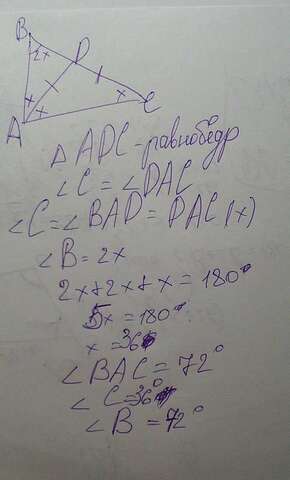 B
2x
D
x
x x
C
A
Δ ADC - равнобедр
∠C = ∠DAC
∠C = ∠BAD = DAC (x)
∠B = 2x
2x + 2x + x = 180°
5x = 180°
x = 36°
∠BAC = 72°
∠C = 36°
∠B = 72°